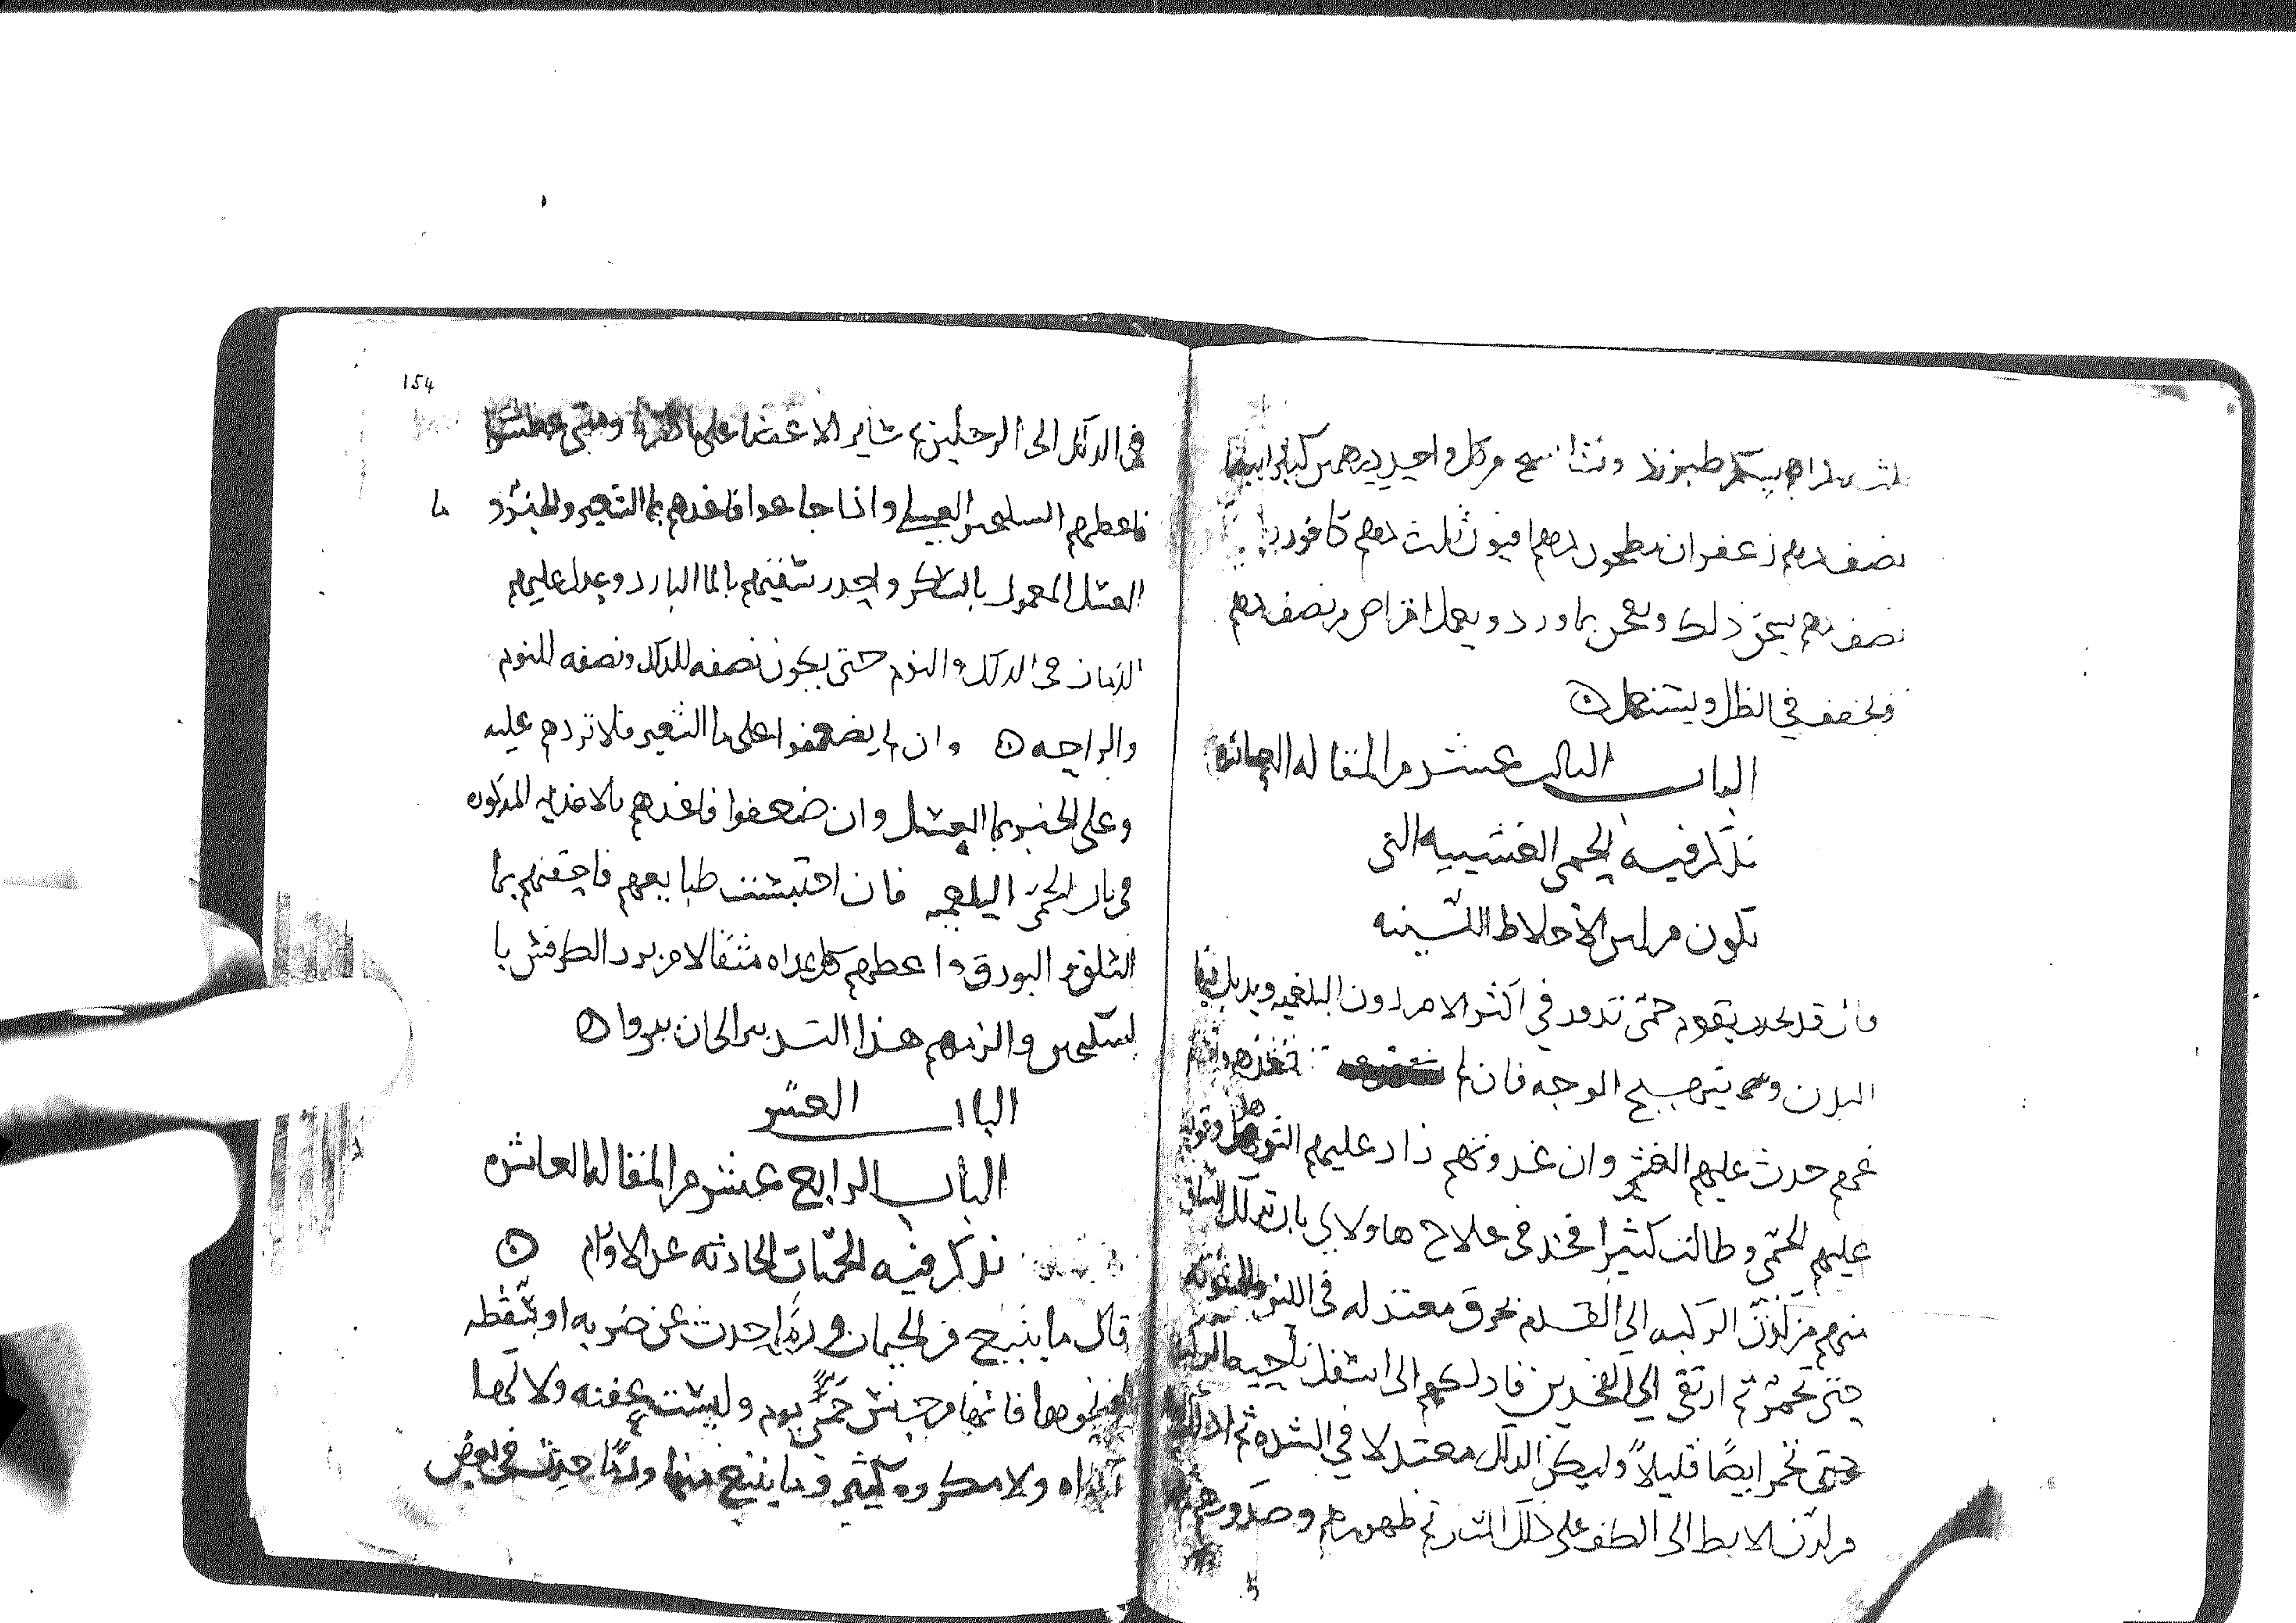 دراهم سكر طبرزد ونشا سح من كل واحد درهمين كثيرا
نصف درهم زعفران مطحون درهم افيون ثلث درهم كافور
نصف درهم يسحق ذلك ويعجن بماورد ويعمل اقراص من نصف درهم
ويجفف في الظل ويستعمل
الباب الثالث عشر من المقاله العاشره
نذكر فيه الحمى الغشييه التي
تكون من الاخلاط النيه
فانه قد يحدث بقوم حمى تدور في اكثر الامر دون البلغميه
البدن يتهيج الوجه فان لم تغذهم
غمهم حدث عليهم الغشي وان غذوتهم زاد عليهم
عليهم الحمى وطالت كثيرا فخذ في علاج هاولاي بان تدلك الساق
منهم من لدن الركبه الى القدم بخرق معتدله في اللين والخشونه
حتى تحمر ثم ارتقى الى الفخدين فادلكهم الى اسفل ناحيه الركبه
حتى تحمر ايضًا قليلاً وليكن الدلك معتدلا في الشده ثم
من لدن الابط الى الكف على ذلك المثال ثم ظهورهم وصدورهم
154
في الدلك الى الرجلين ثم ساير الاعضا على ما ذكرنا ومتى عطشوا
فاعطهم السكنجبين العسلي واذا جاعوا فاغدهم بما الشعير والخبز و ما
العسل المعمول بالسكر واحدر سقيهم بالما البارد وعدل عليهم
الزمان في الدلك والنوم حتى يكون نصفه للدلك ونصفه للنوم
والراحه وان لم يضعفوا على ما الشعير فلا تزدهم عليه
وعلى الخبز بما العسل وان ضعفوا فاغدهم بالاغذيه المذكوره
في باب الحمى البلغميه فان احتبست طبايعهم فاحقنهم بما
السلق والبورق واعطهم كل غداه مثقالا من بزر الكرفس با
لسكنجبين والزمهم هذا التدبير الى ان يبروا
الباب العشر
الباب الرابع عشر من المقاله العاشره
نذكر فيه الحميات الحادثه عن الاورام
قال ما ينتج من الحميات ورم احدث عن ضربه او سقطه
ونحوها فانها من جنس حمى يوم وليست بعفنه ولا لها
ولا مكروه كثير وما ينتج منها ورمًا حدث في بعض